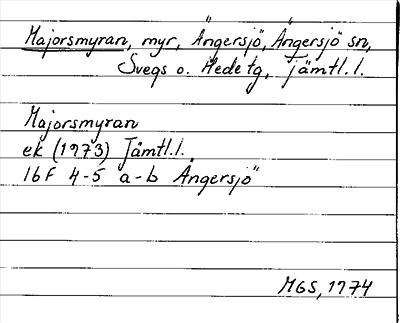 Majorsmyran, myr, Ängersjö, Ängersjö sn,
Svegs o. Hede tg, Jämtl.l.
Majorsmyran
ek (1973) Jämtl.l.
16F 4-5 a-b Ängersjö
MGS, 1974